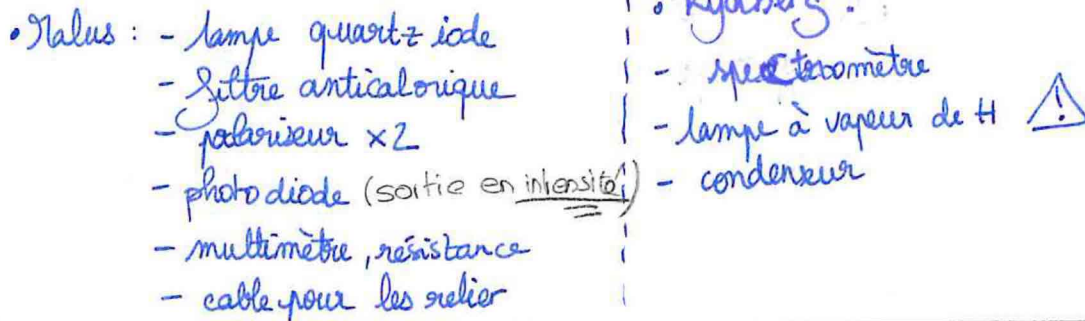 • Malus : - lampe quartz iode
- filtre anticalorique
- polariseur x2
- photodiode (sortie en intensité)
- multimètre, résistance
- cable pour les relier
• Rydberg :
- spectromètre
- lampe à vapeur de H
- condenseur